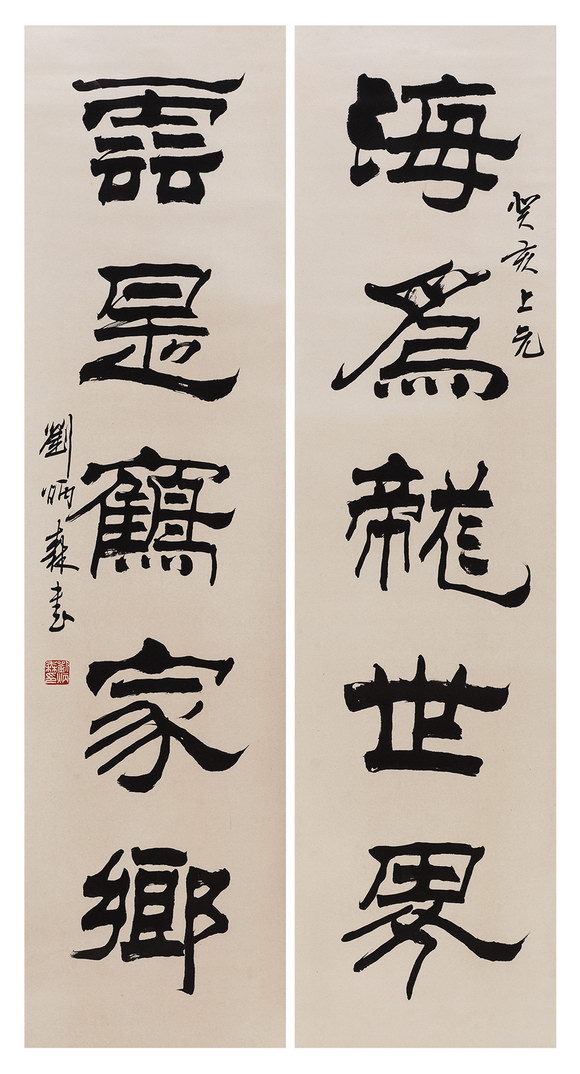 海爲龍世界
癸亥上元
雲是鶴家鄉
劉炳森書